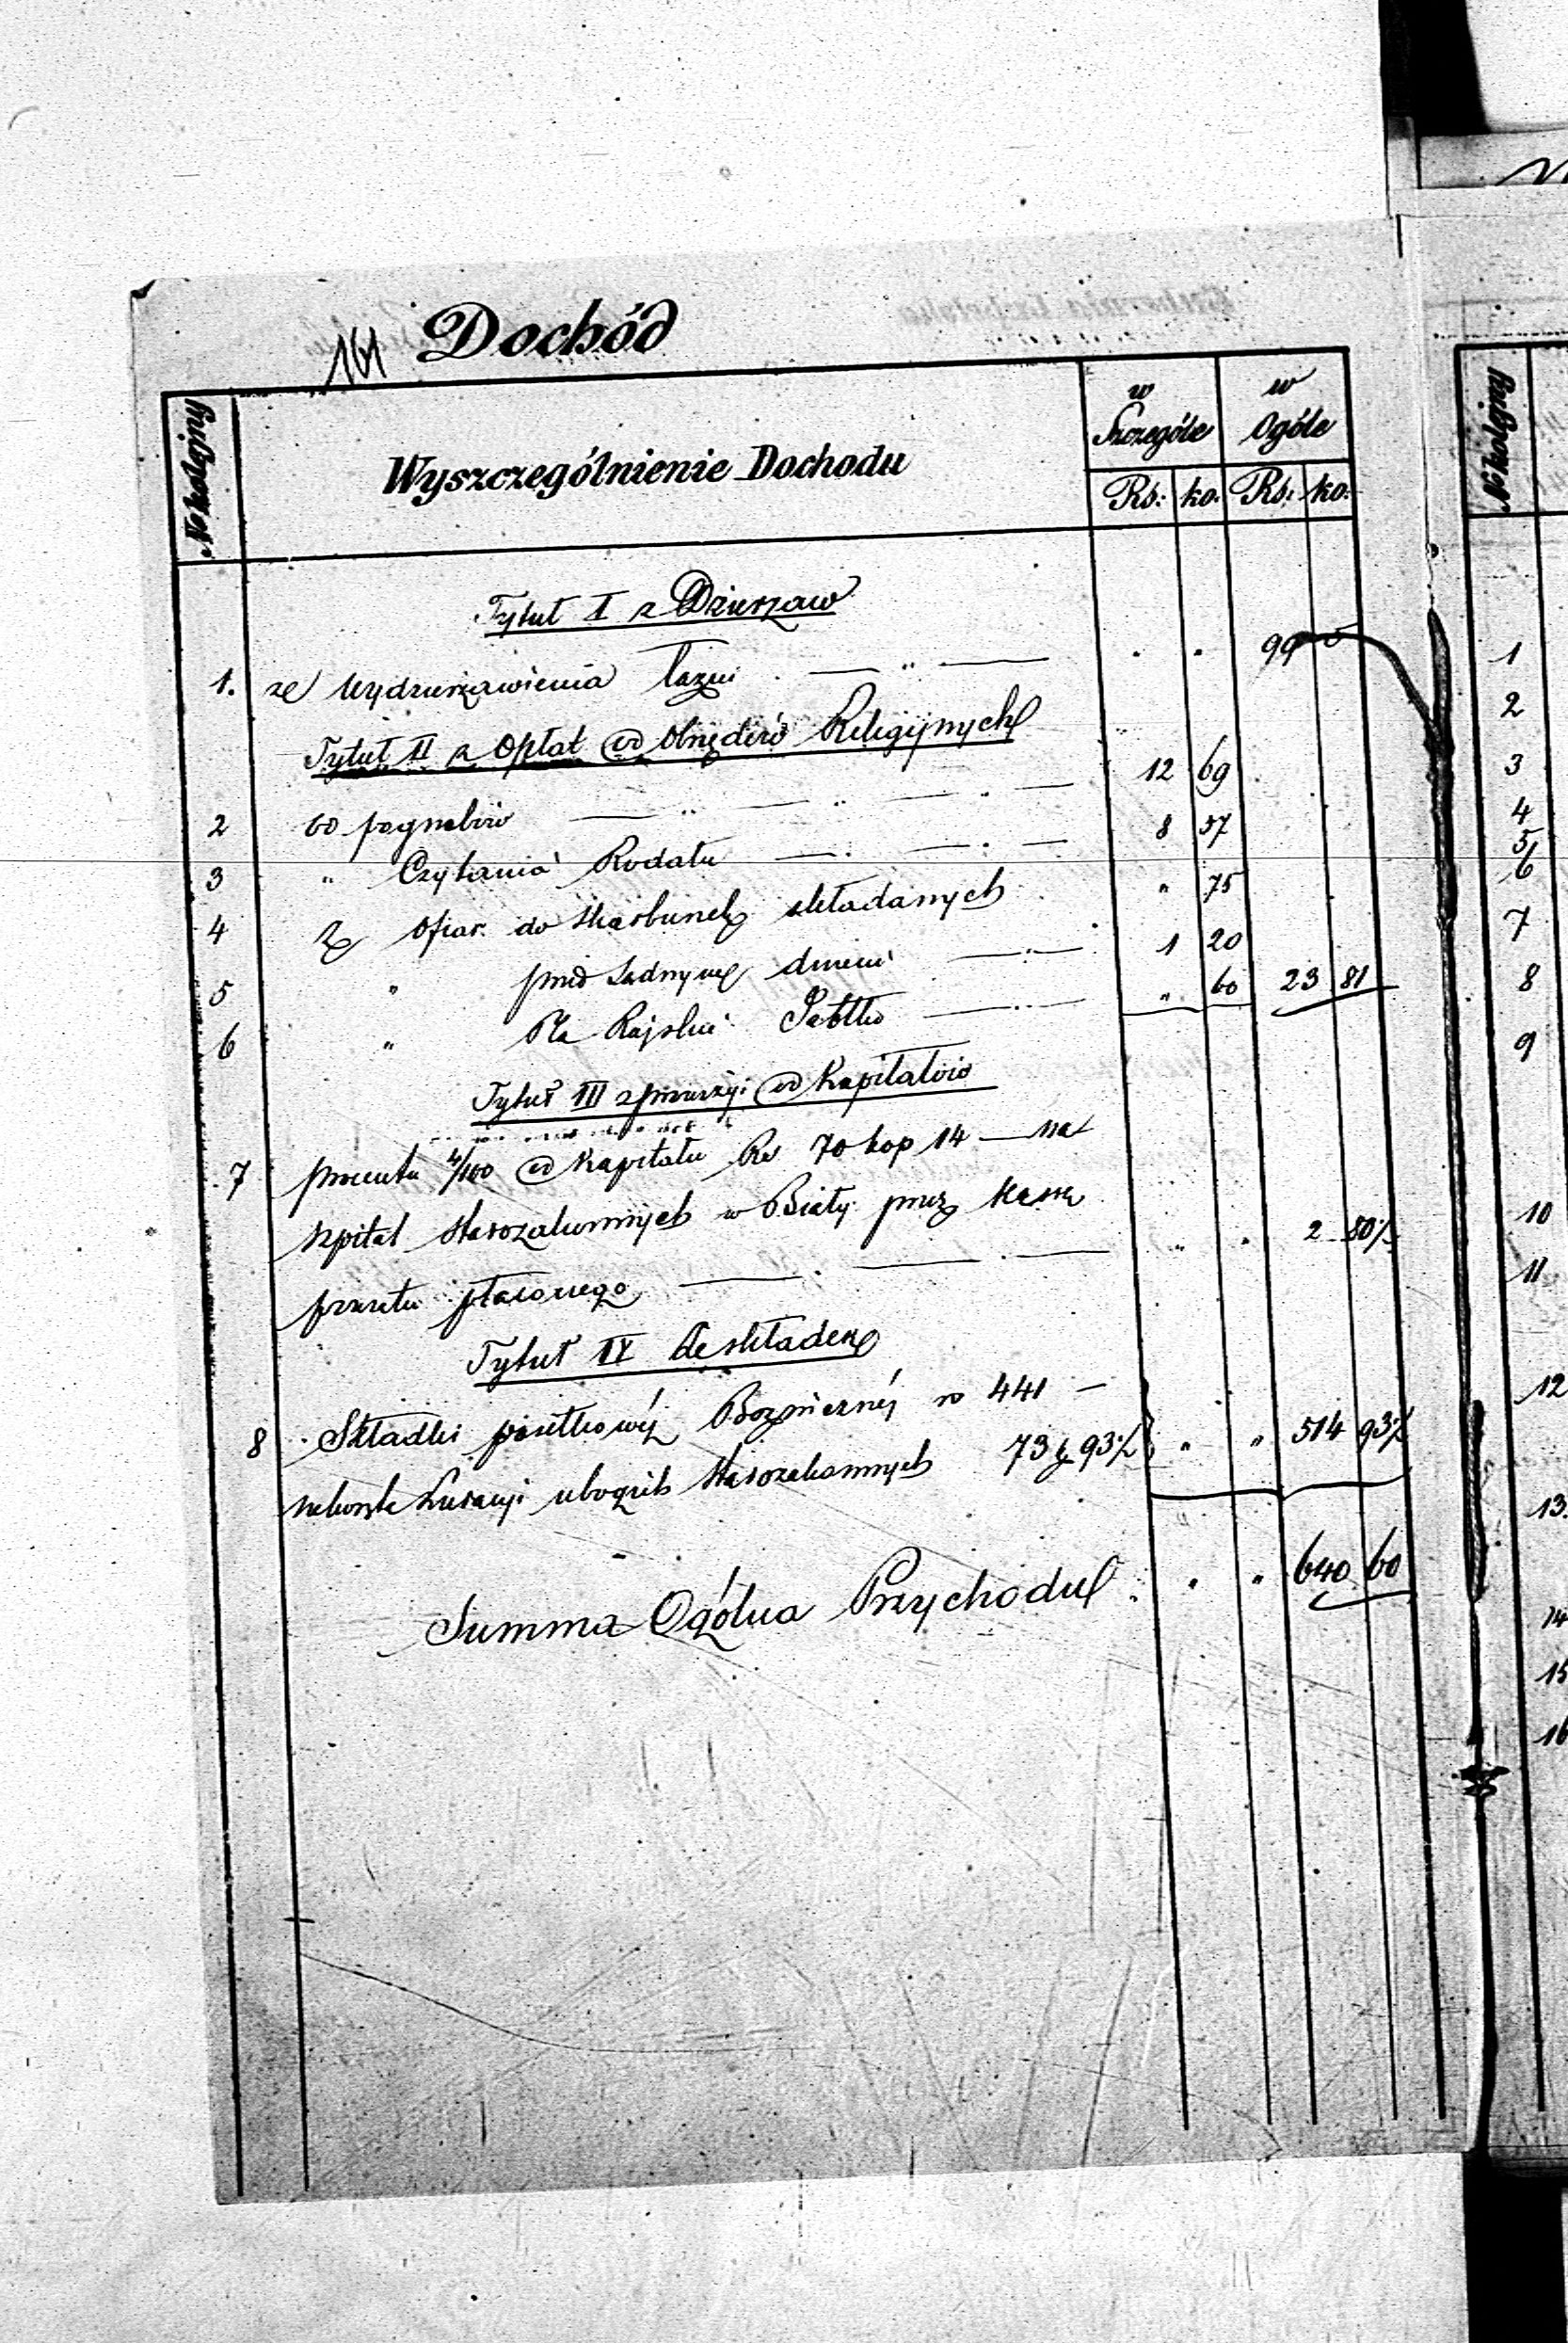 161 Dochód
No kolejny
Wyszczególnienie Dochodu
w Szczególe
w Ogóle
Rs: ko: Rs: ko:
Tytuł I z Dzierżaw
1. ze Wydzierżawienia Łaźni . — " — . . 99
Tytuł II z Opłat od Obrzędów Religijnych
2 od pogrzebów — " — " — " — 12 69
3 " Czytania Rodału — . — . — 8 57
4 Z Ofiar do skarbunek składanych " 75
5 " przed Sądnym dniem — . — 1 20
6 " Na Rajskie Jabłko — . — " 60 23 81
Tytuł III z prowizyi od Kapitałów
7 procentu 4/100 od Kapitału Rs 70 kop 14 — na
szpital starozakonnych w Biały przez Kassę
powiatu płaconego — . — . — " . 2 80½
Tytuł IV Ze składek
8 Składki Bożnicznéj rs 441 —
ubogich starozakonnych 73 k 93½ " " 514 93½
Summa Ogólna Przychodu . . " 640 60
No kolejny
1
2
3
4
5
6
7
8
9
10
11
12
13.
14
15
16